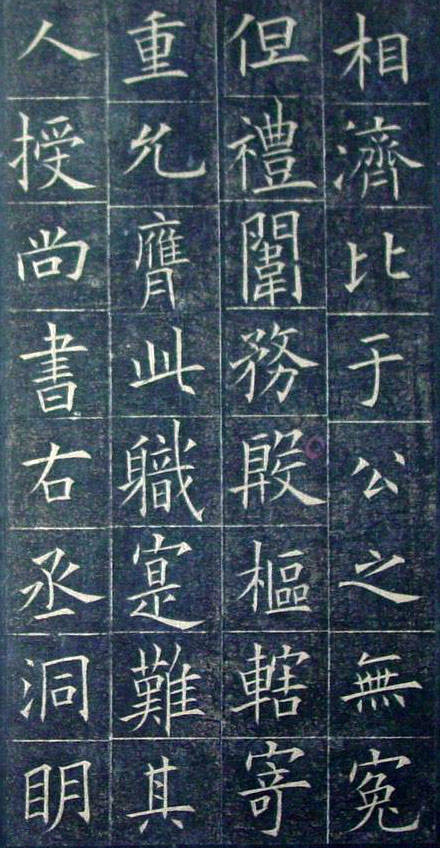 相濟比于公之無寃
但禮闈務殷樞轄寄
重允膺此軄寔難其
人授尚書右丞洞明